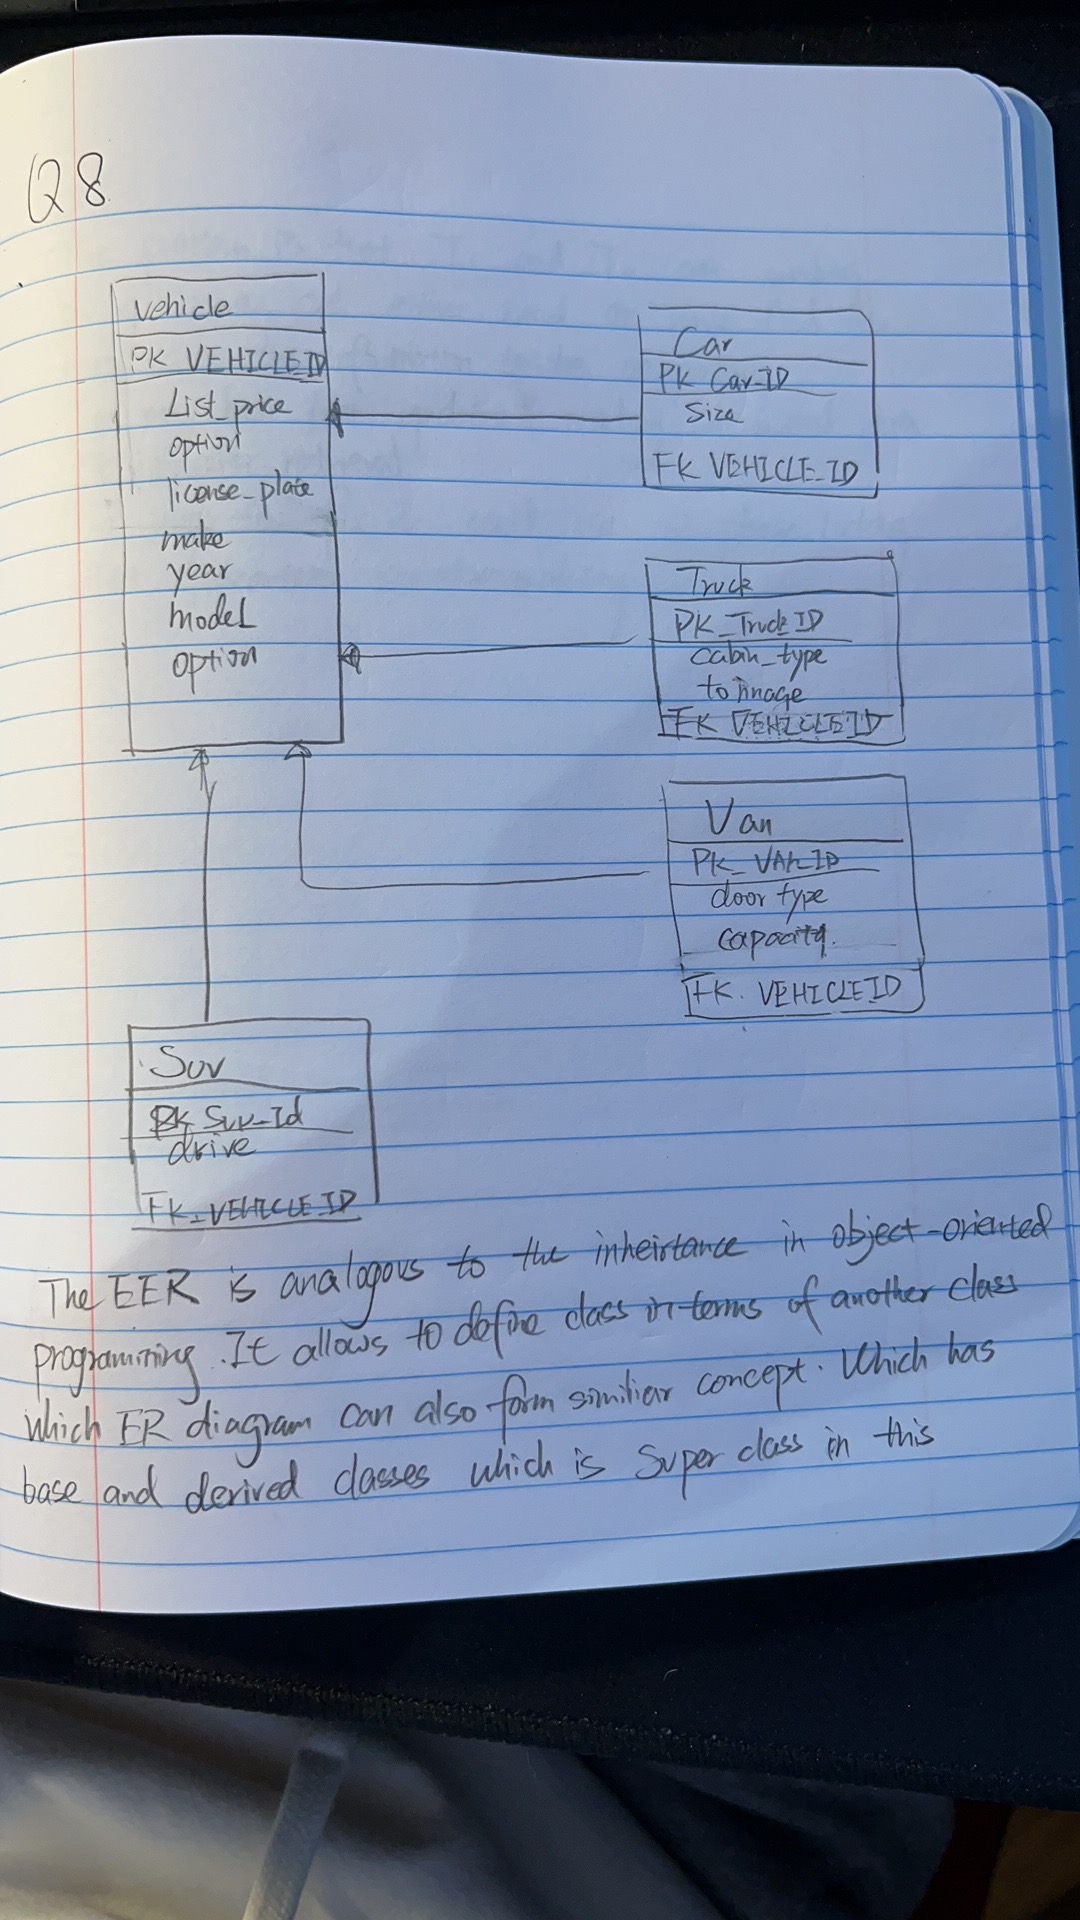 Q8
Vehicle
PK VEHICLEID
List_price
option
license_plate
make
year
model
option
Car
PK Car_ID
Size
FK VEHICLE_ID
Truck
PK_Truck ID
cabin_type
tonnage
FK VEHICLEID
Van
PK_VAN_ID
door type
capacity.
FK. VEHICLEID
Suv
PK Suv_Id
drive
FK_VEHICLE_ID
The EER is analogous to the inheirtance in object-oriented
programming. It allows to define class in terms of another class
which ER diagram can also form similiar concept. Which has
base and derived classes which is Super class in this